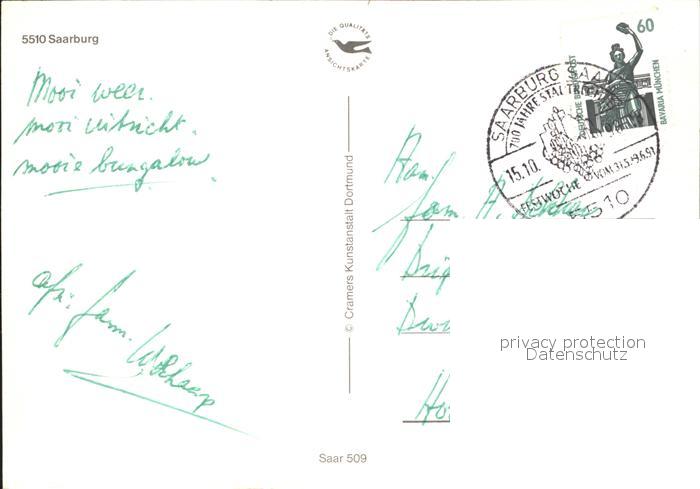 5510 Saarburg
DIE QUALITÄTS
ANSICHTSKARTE
60
DEUTSCHE BUNDESPOST
BAVARIA MÜNCHEN
SAARBURG
700 JAHRE STADTRECHTE
15.10.
FESTWOCHE VOM 31.5.-9.6.91
5510
Mooi weer.
mooi uitzicht.
mooie bungalow
afz. fam.
© Cramers Kunstanstalt Dortmund
Aan,
fam. A.
privacy protection
Datenschutz
Saar 509